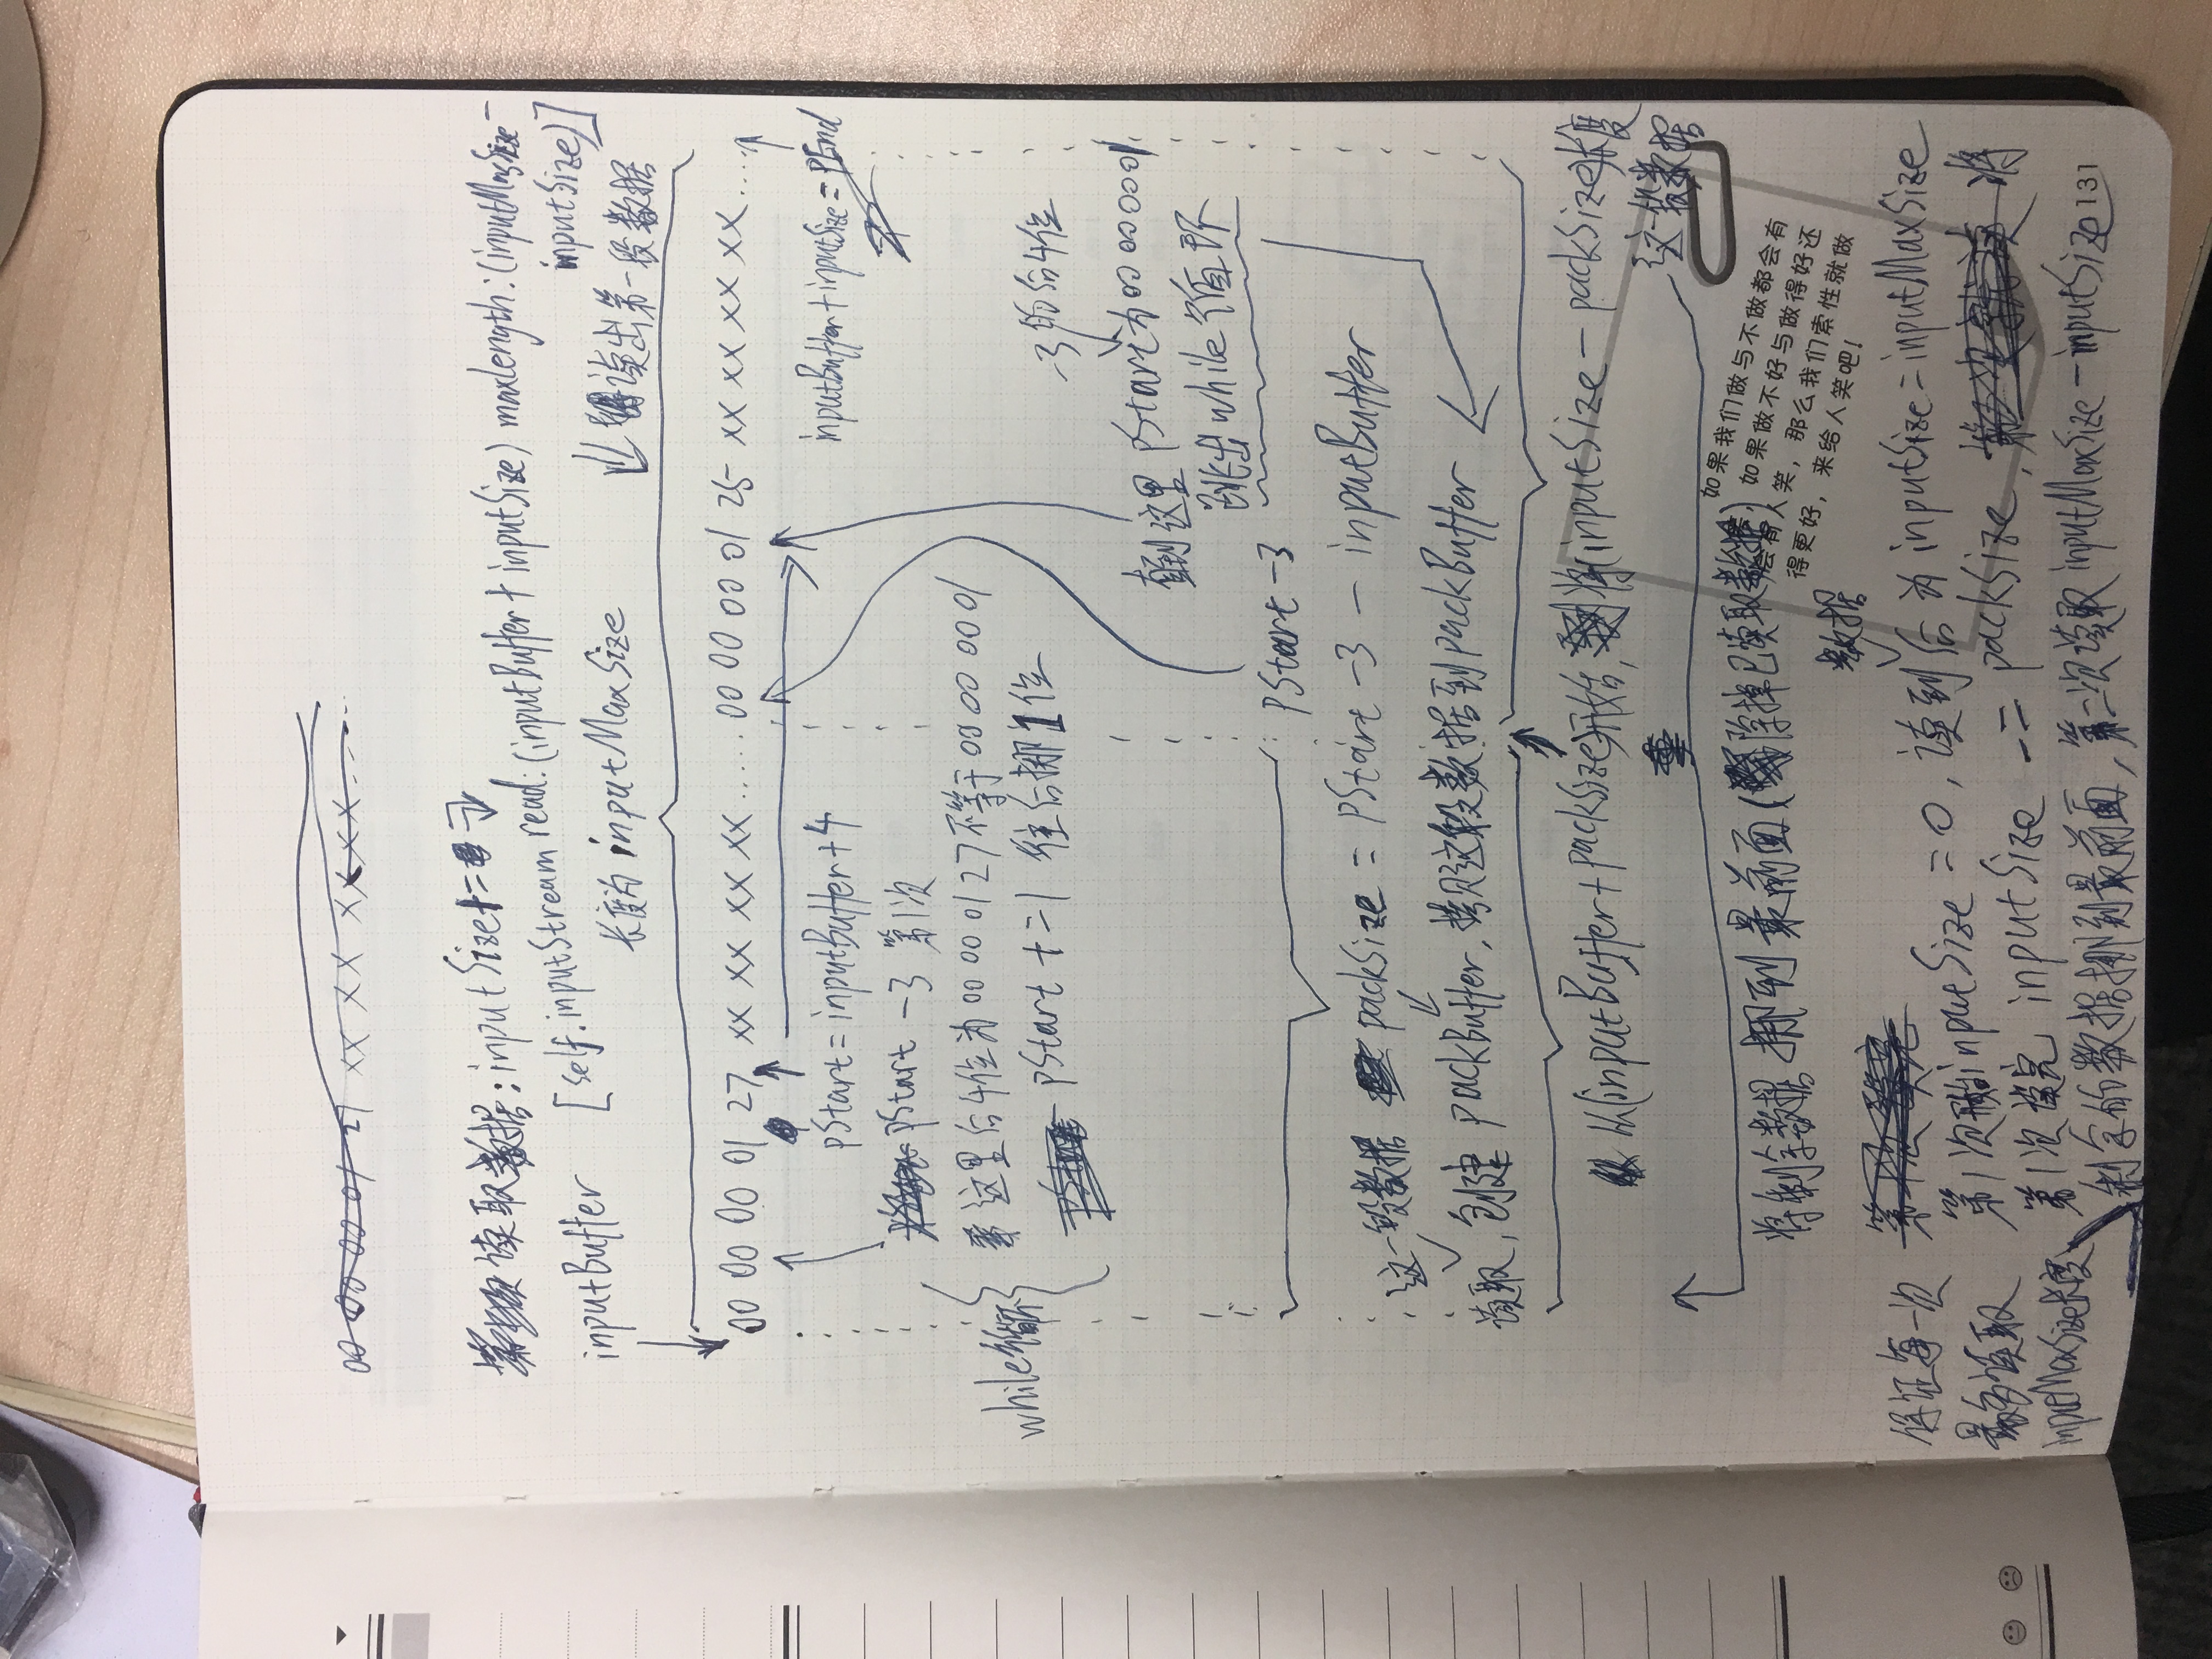 00 00 00 01 27 XX XX XX XX ....
读取数据: inputSize+=
[self.inputStream read:(inputBuffer + inputSize) maxlength:(inputMaxSize-
inputSize)]
inputBuffer
长度为 inputMaxSize
读出第一段数据
00 00 00 01 27 XX XX XX XX ..... 00 00 00 01 25 XX XX XX XX ....
pStart = inputBuffer+4
inputBuffer+inputSize = pEnd
pStart -3 第1次
while循环
这里后4位为00 00 01 27不等于00 00 00 01
pStart +=1 往后挪1位
-3的后4位
直到这里 pStart为00 00 00 01
跳出while循环
pStart -3
这一段数据 packSize = pStart -3 - inputBuffer
读取,创建 packBuffer,拷贝这段数据到packBuffer
从(inputBuffer+packSize)开始,将(inputSize - packSize)长度
这一段数据
将剩余数据挪到最前面(除掉已读取数据)
如果我们做与不做都会有
会有人笑,如果做不好与做得好还
得更好,那么我们索性就做
来给人笑吧!
数据
保证每一次
最多读取
inputMaxSize长度
第1次开始inputSize = 0,读到后为inputSize=inputMaxSize
第1次读完 inputSize -= packSize,将
剩余的数据挪到最前面,第二次读取inputMaxSize-inputSize
131